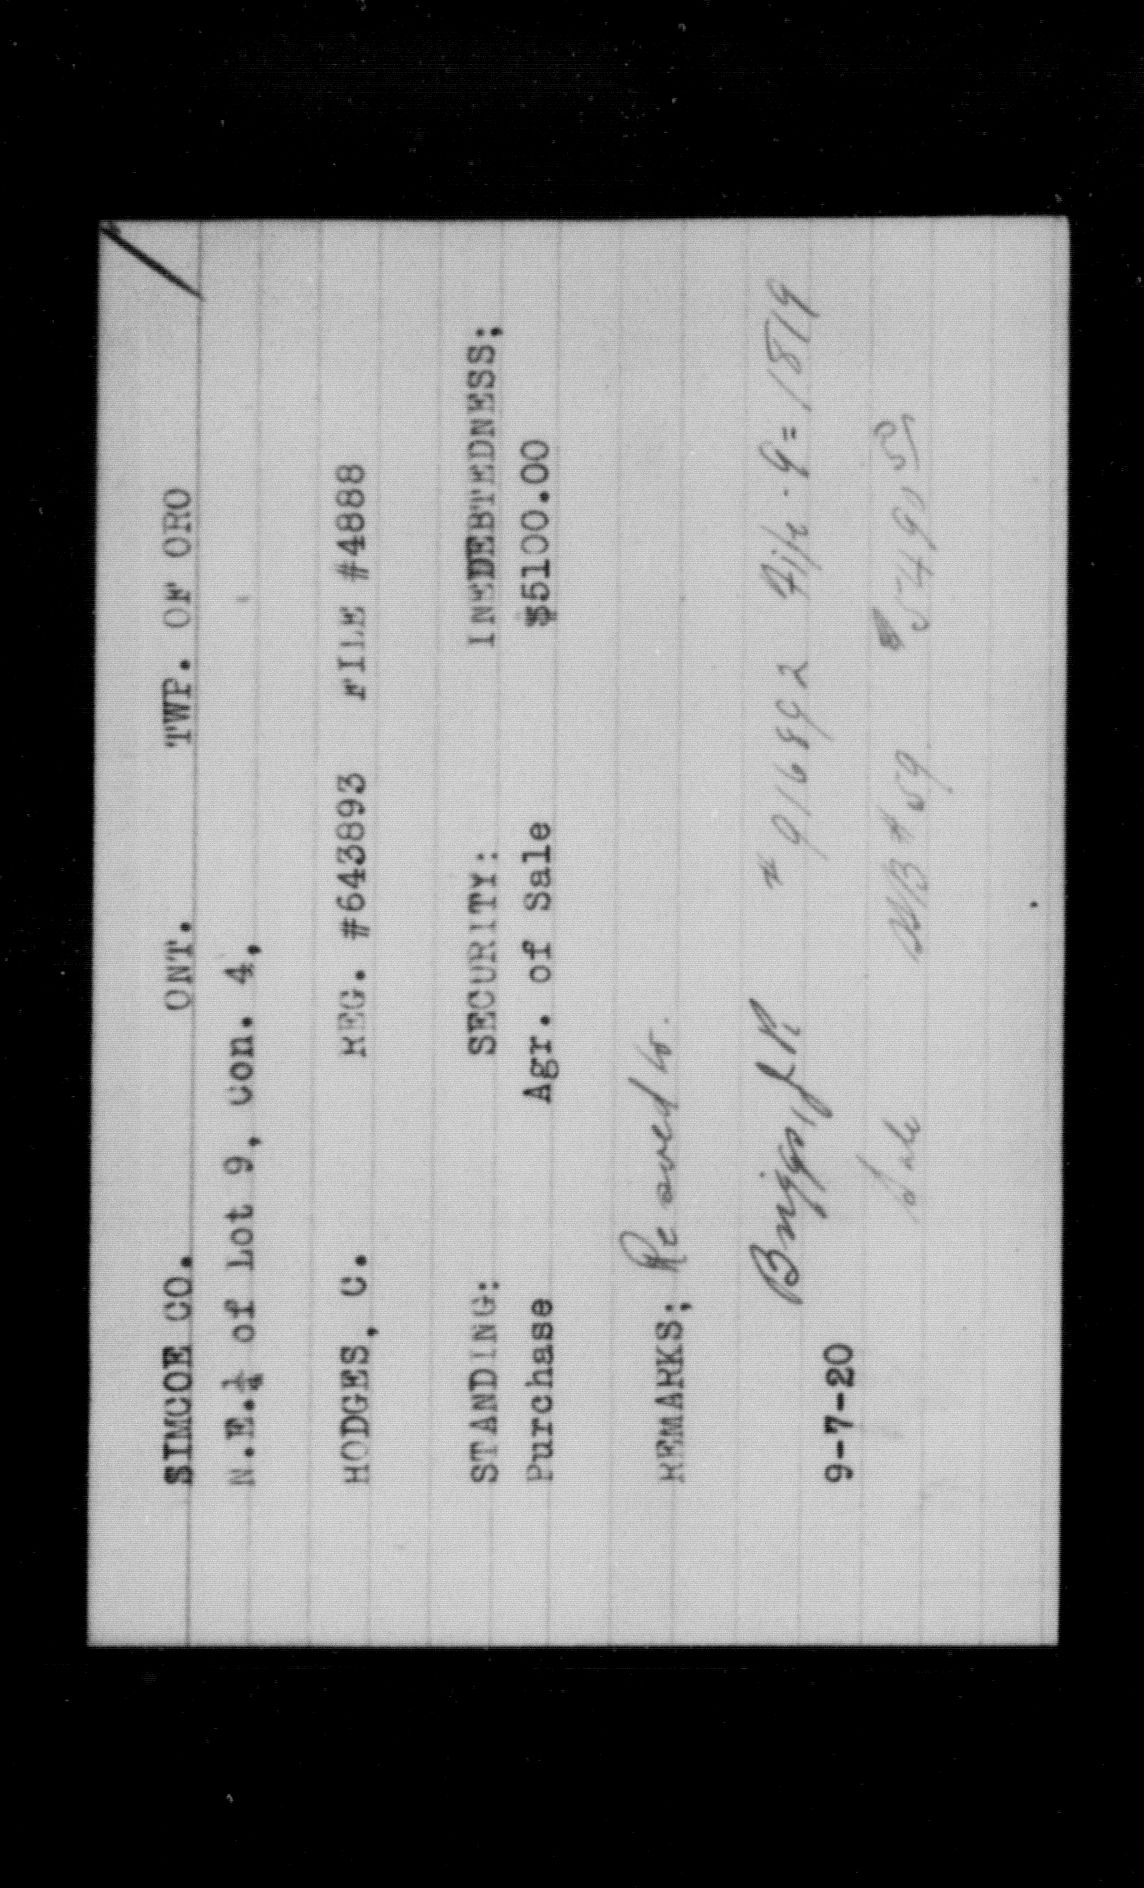 SIMCOE CO. ONT. TWP. OF ORO
N.E.¼ of Lot 9, Con. 4,
HODGES, C. REG. #643893 FILE #4888
STANDING: SECURITY: INEDEBTEDNESS;
Purchase Agr. of Sale $5100.00
REMARKS; Resold to.
Briggs, J R # 916892 File · 9 = 1819
9-7-20
Sale #59. $5491 55